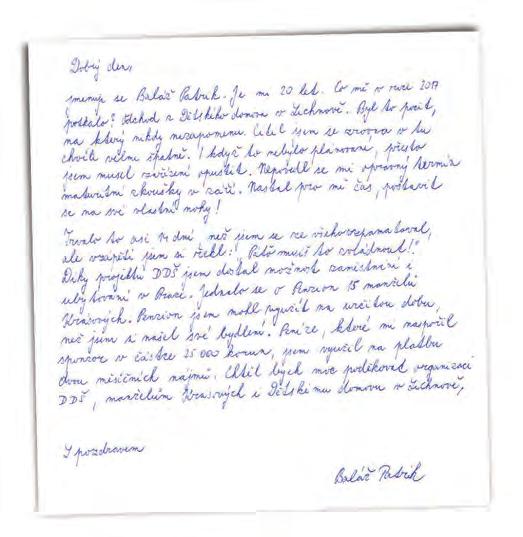 Dobrý den,
jmenuji se Baláž Patrik. Je mi 20 let. Co mě v roce 2017
potkalo? Odchod z Dětského domova v Lechnově. Byl to pocit,
na který nikdy nezapomenu. Cítil jsem se zrovna v tu
chvíli velmi špatně. I když to nebylo plánované, přesto
jsem musel zařízení opustit. Nepovedl se mi opravný termín
maturitní zkoušky v září. Nastal pro mě čas, postavit
se na své vlastní nohy!
Trvalo to asi 14 dní než jsem se ze všeho vzpamatoval,
ale vzápětí jsem si řekl: "Paťo musíš to zvládnout!"
Díky projektu DDŠ jsem dostal možnost zaměstnání i
ubytování v Praze. Jednalo se o Penzion 15 manželů
Krasových. Penzion jsem mohl využít na určitou dobu,
než jsem si našel své bydlení. Peníze, které mi naspořil
sponzor v částce 25 000 korun, jsem využil na platbu
dvou měsíčních nájmů. Chtěl bych moc poděkovat organizaci
DDŠ, manželům Krasových i Dětskému domovu v Lechnově,
S pozdravem
Baláž Patrik